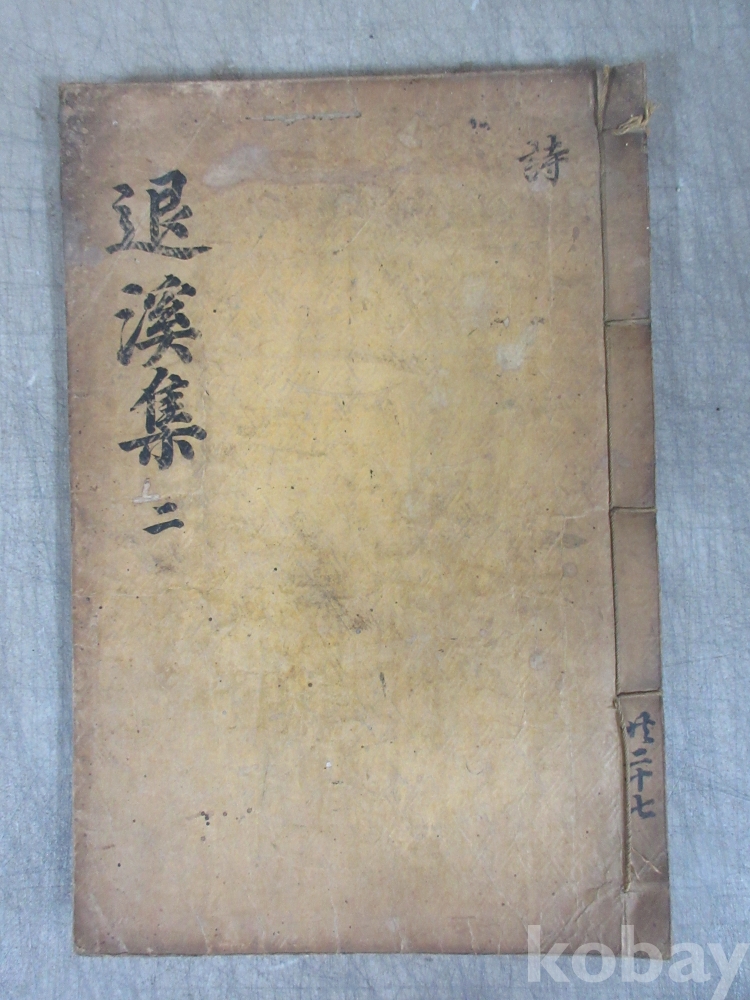 詩
退溪集 二
共二十七
kobay